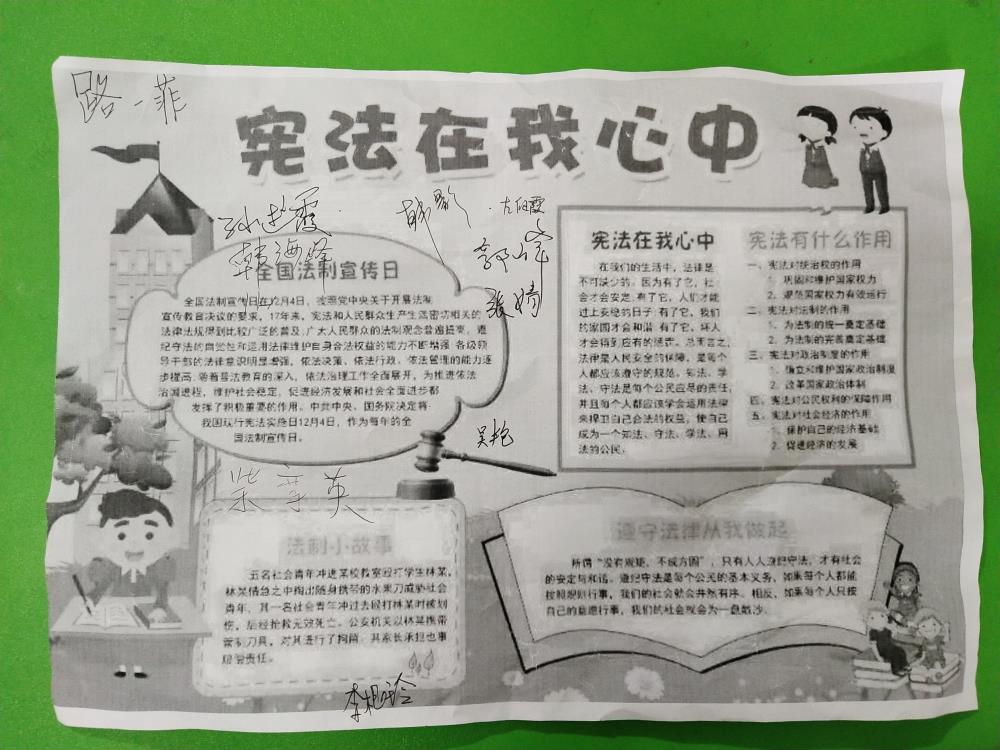 路一菲
宪法在我心中
孙赵霞
韩海峰
左向霞
郭峰
张婧
吴艳
柴李英
李相玲
全国法制宣传日
全国法制宣传日在12月4日，按照党中央关于开展法制
宣传教育决议的要求，17年来，宪法和人民群众生产生活密切相关的
法律法规得到比较广泛的普及，广大人民群众的法制观念普遍提高，遵
纪守法的自觉性和运用法律维护自身合法权益的能力不断增强，各级领
导干部的法律意识明显增强，依法决策、依法行政、依法管理的能力逐
步提高，随着普法教育的深入，依法治理工作全面展开，为推进依法
治国进程，维护社会稳定，促进经济发展和社会全面进步都
发挥了积极重要的作用。中共中央、国务院决定将
我国现行宪法实施日12月4日，作为每年的全
国法制宣传日。
宪法在我心中
在我们的生活中，法律是
不可缺少的。因为有了它，社
会才会安定，有了它，人们才能
过上安稳的日子；有了它，我们
的家园才会和谐，有了它，坏人
才会得到应有的惩罚。总而言之，
法律是人民安全的保障，是每个
人都应该遵守的规范。知法、学
法、守法是每个公民应尽的责任，
并且每个人都应该学会运用法律
来捍卫自己合法的权益，使自己
成为一个知法、守法、学法、用
法的公民。
宪法有什么作用
一、宪法对统治权的作用
1、巩固和维护国家权力
2、规范国家权力有效运行
二、宪法对法制的作用
1、为法制的统一奠定基础
2、为法制的完善奠定基础
三、宪法对政治制度的作用
1、确立和维护国家政治制度
2、改革国家政治体制
四、宪法对公民权利的保障作用
五、宪法对社会经济的作用
1、保护自己的经济基础
2、促进经济的发展
法制小故事
五名社会青年冲进某校教室殴打学生林某，
林某情急之中掏出随身携带的水果刀威胁社会
青年，其一名社会青年冲过去殴打林某时被划
伤，后经抢救无效死亡。公安机关以林某携带
管制刀具，对其进行了拘留，其家长承担也事
赔偿责任。
遵守法律从我做起
所谓“没有规矩，不成方圆”，只有人人遵纪守法，才有社会
的安定与和谐。遵纪守法是每个公民的基本义务，如果每个人都能
按照规则行事，我们的社会就会井然有序。相反，如果每个人只按
自己的意愿行事，我们的社会就会为一盘散沙。